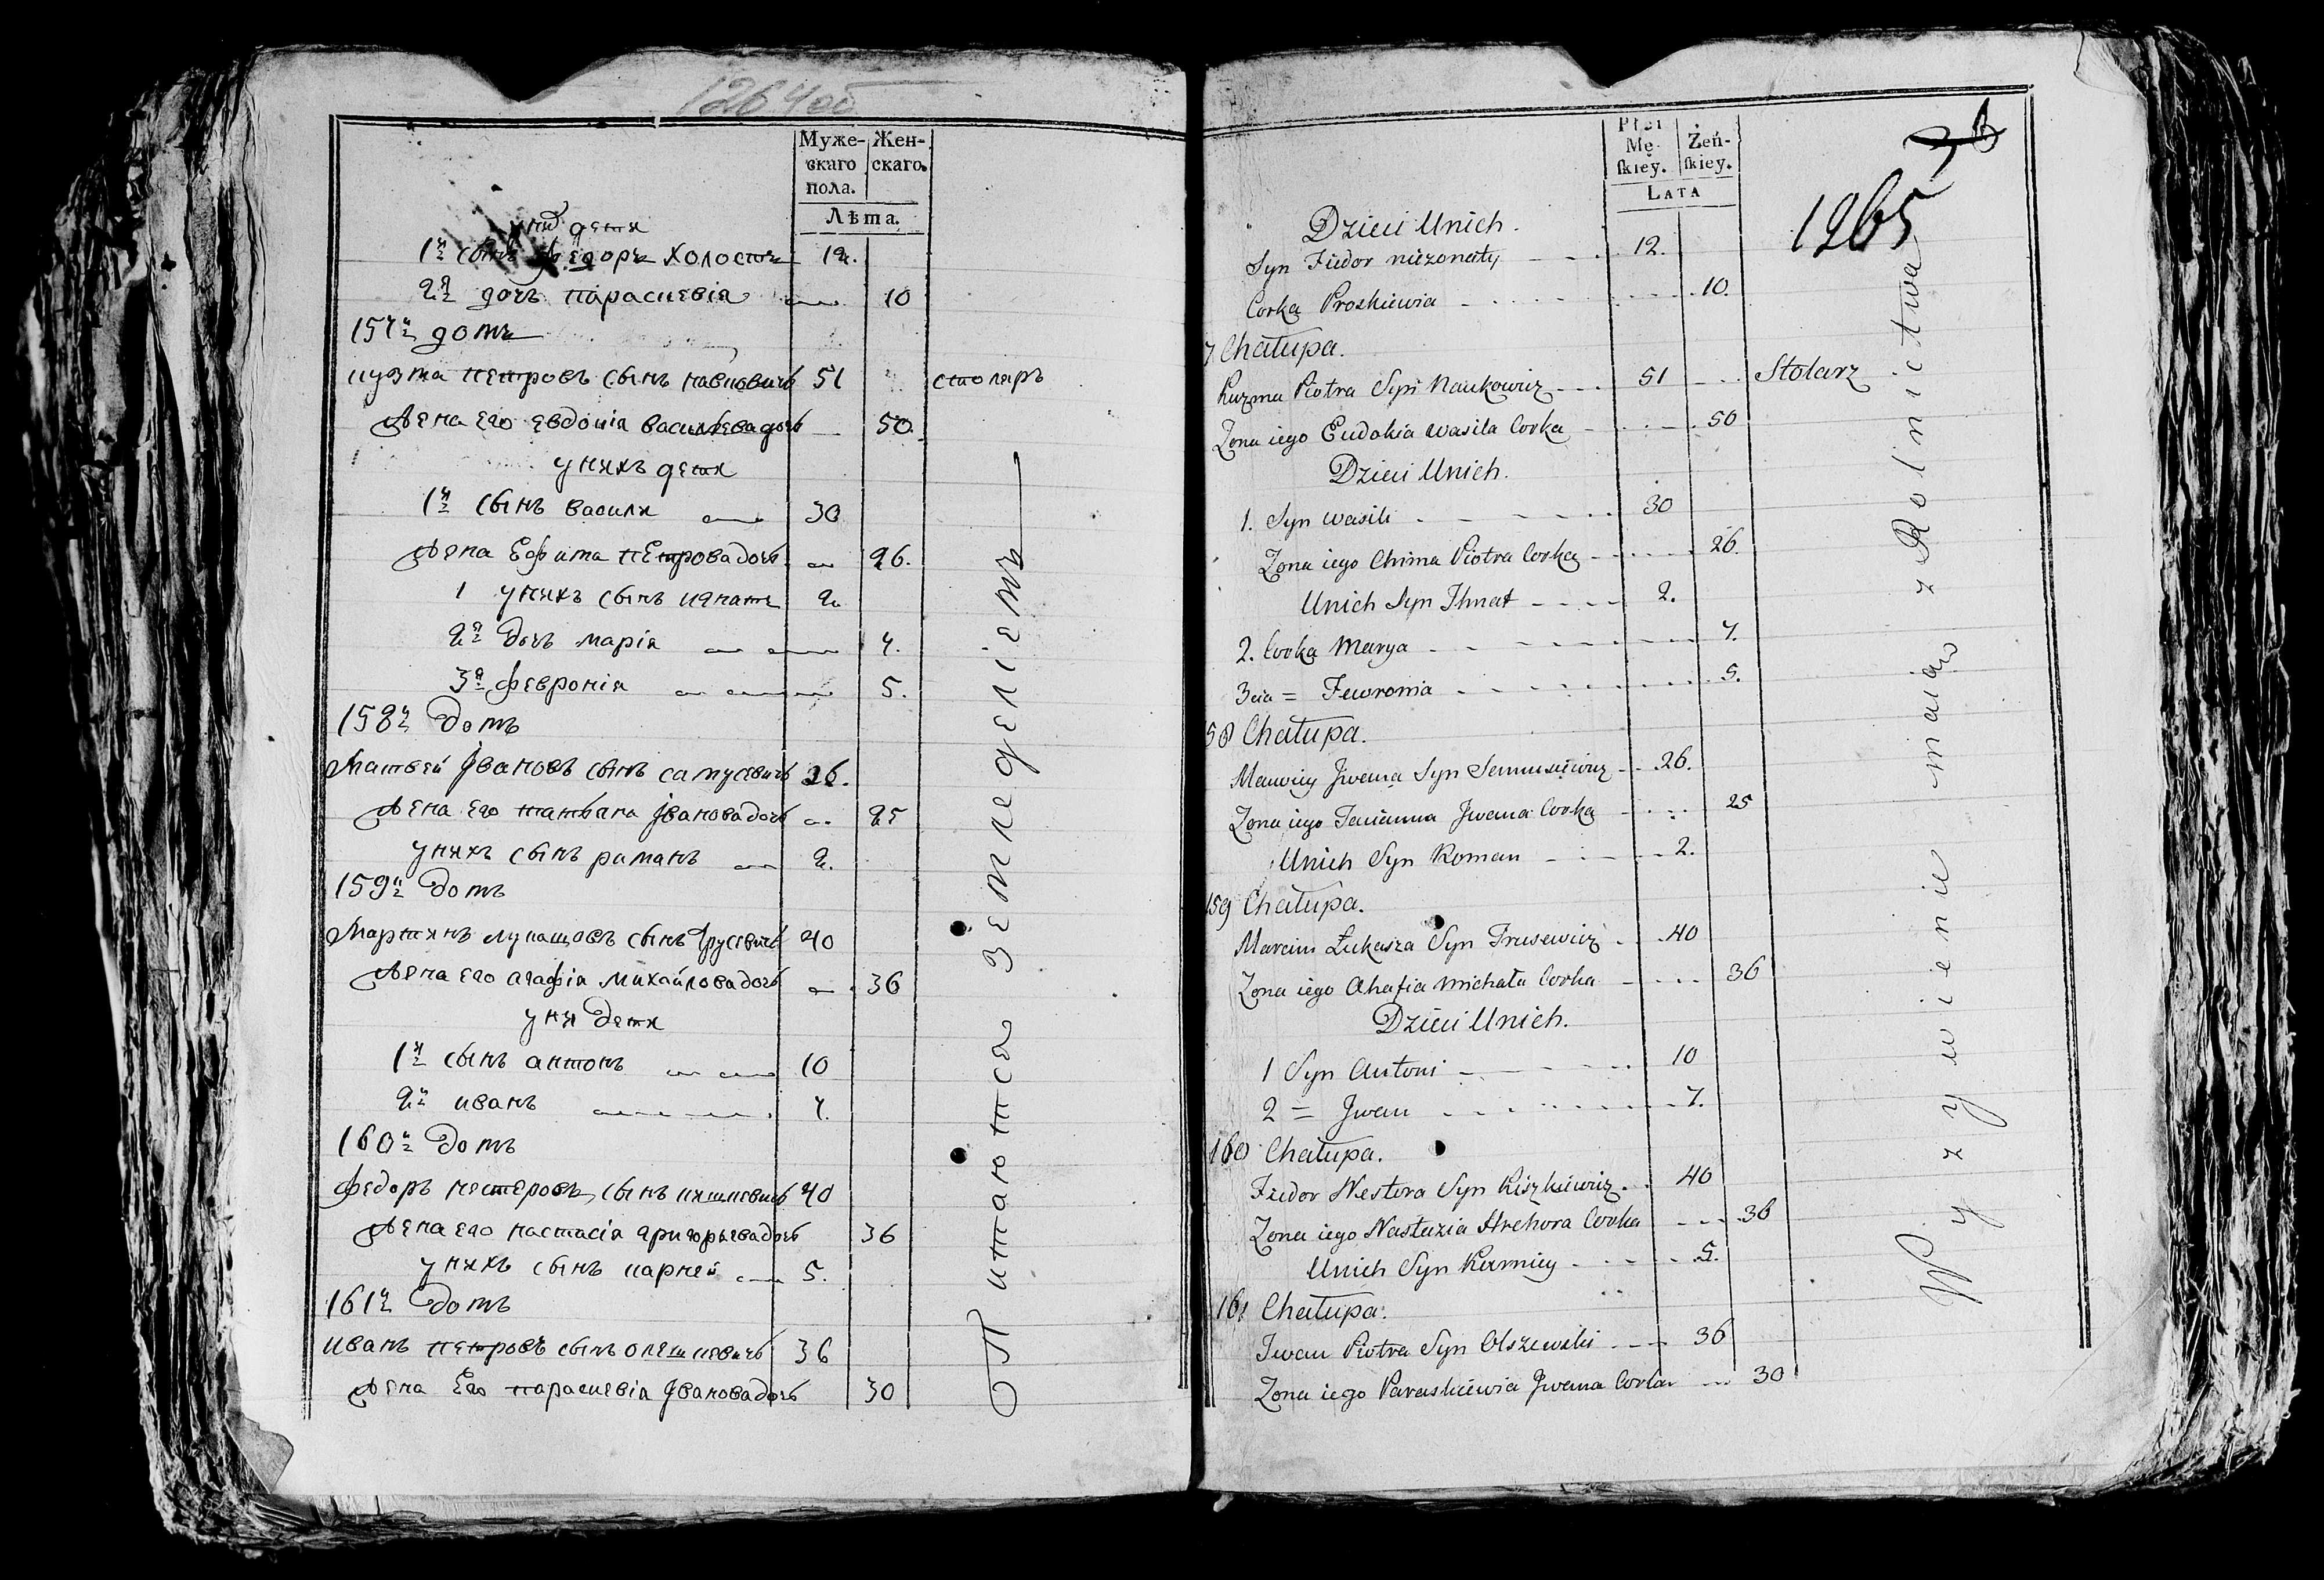 1264об
Муже-
скаго
пола.
Жен-
скаго.
Лѣта.
у них дети
1й сынъ федоръ холостъ 12.
2я дочь параскевія 10
157й домъ
кузма петровъ сынъ навковичь 51 столяръ
жена его евдокія васильева дочь 50.
у нихъ дети
1й сынъ васили 30
жена Ефима петрова дочь 26.
1 у нихъ сынъ игнатъ 2
2я дочь марія 7.
3я февронія 5.
158й домъ
Матвей Ивановъ сынъ самусевичь 26.
жена его татьяна Іванова дочь 25
у нихъ сынъ раманъ 2.
159й домъ
Мартинъ лукашовъ сынъ трусевичь 40
жена его агафія михайлова дочь 36
у них дети
1й сынъ антонъ 10
2й иванъ 7.
160й домъ
федоръ нестеровъ сынъ кишкевичь 40
жена его настасія григорьева дочь 36
у нихъ сынъ карней 5.
161й домъ
иванъ петровъ сынъ олешкевичь 36
жена Его параскевія Іванова дочь 30
Питаются земледеліемъ
Płci
Mę-
ſkiey.
Żeń-
ſkiey.
LATA
1265
Dzieci Unich.
Syn Fiedor nieżonaty 12.
Corka Proskiewia 10.
7 Chałupa.
Kuzma Piotra Syn Naukowicz 51 Stolarz
Zona iego Eudokia Wasila Corka 50
Dzieci Unich.
1. Syn Wasili 30
Zona iego Chima Piotra Corka 26.
Unich Syn Ihnat 2.
2. Corka Marya 7.
3cia = Fewronia 5.
58 Chałupa.
Mawiey Jwana Syn Samusiewicz 26.
Zona iego Tacianna Jwana Corka 25
Unich Syn Roman 2.
159 Chałupa.
Marcin Łukasza Syn Trusewicz 40
Zona iego Ahafia Michała Corka 36
Dzieci Unich.
1 Syn Antoni 10
2 = Jwan 7.
160 Chałupa.
Fiedor Nestora Syn Kiszkiewicz 40
Zona iego Nastazia Hrehora Corka 36
Unich Syn Karniey 5.
161 Chałupa.
Iwan Piotra Syn Olszewski 36
Zona iego Paraskiewia Jwana Corka 30
Wyzywienie maiąz z Rolnictwa